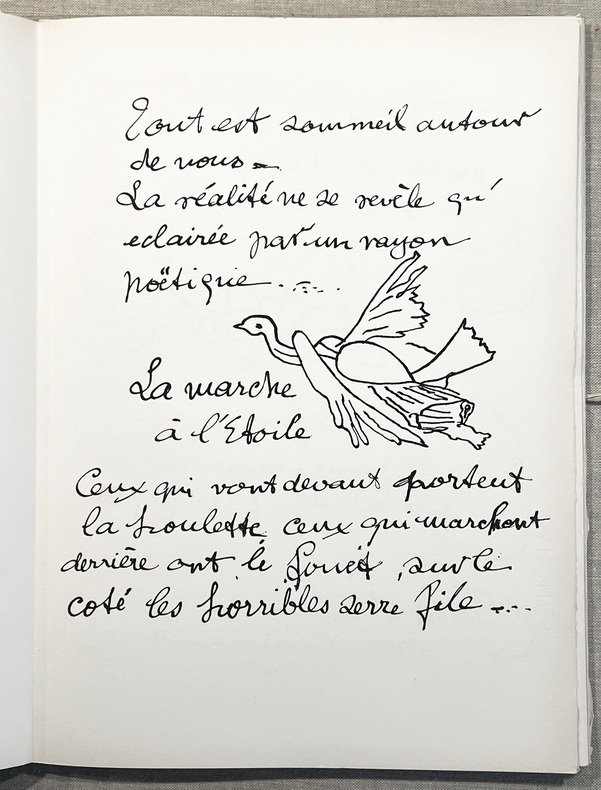 Tout est sommeil autour
de nous —
La réalité ne se revèle qu'
eclairée par un rayon
poëtique . . . . .
La marche
à l'Etoile
Ceux qui vont devant portent
la houlette ceux qui marchent
derrière ont le fouet , sur le
coté les horribles serre file — . . .